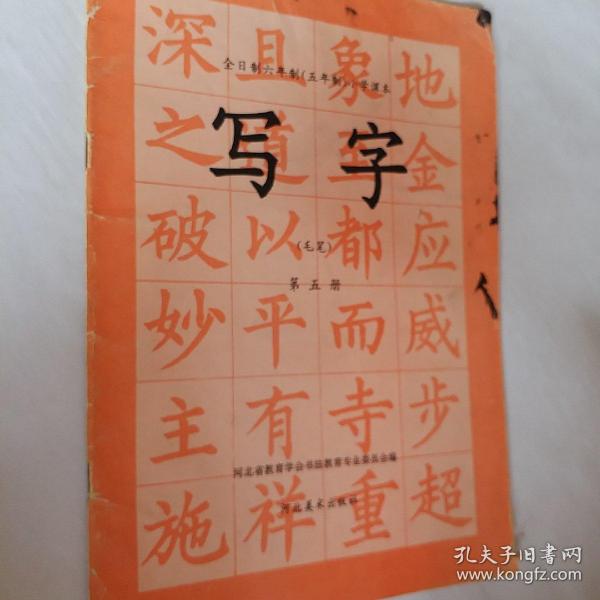 深且象地
全日制六年制(五年制)小学课本
写字
之道至金
(毛笔)
破以都应
第五册
妙平而威
主有寺步
河北省教育学会书法教育专业委员会编
河北美术出版社
施祥重超
孔夫子旧书网
www.kongfz.com